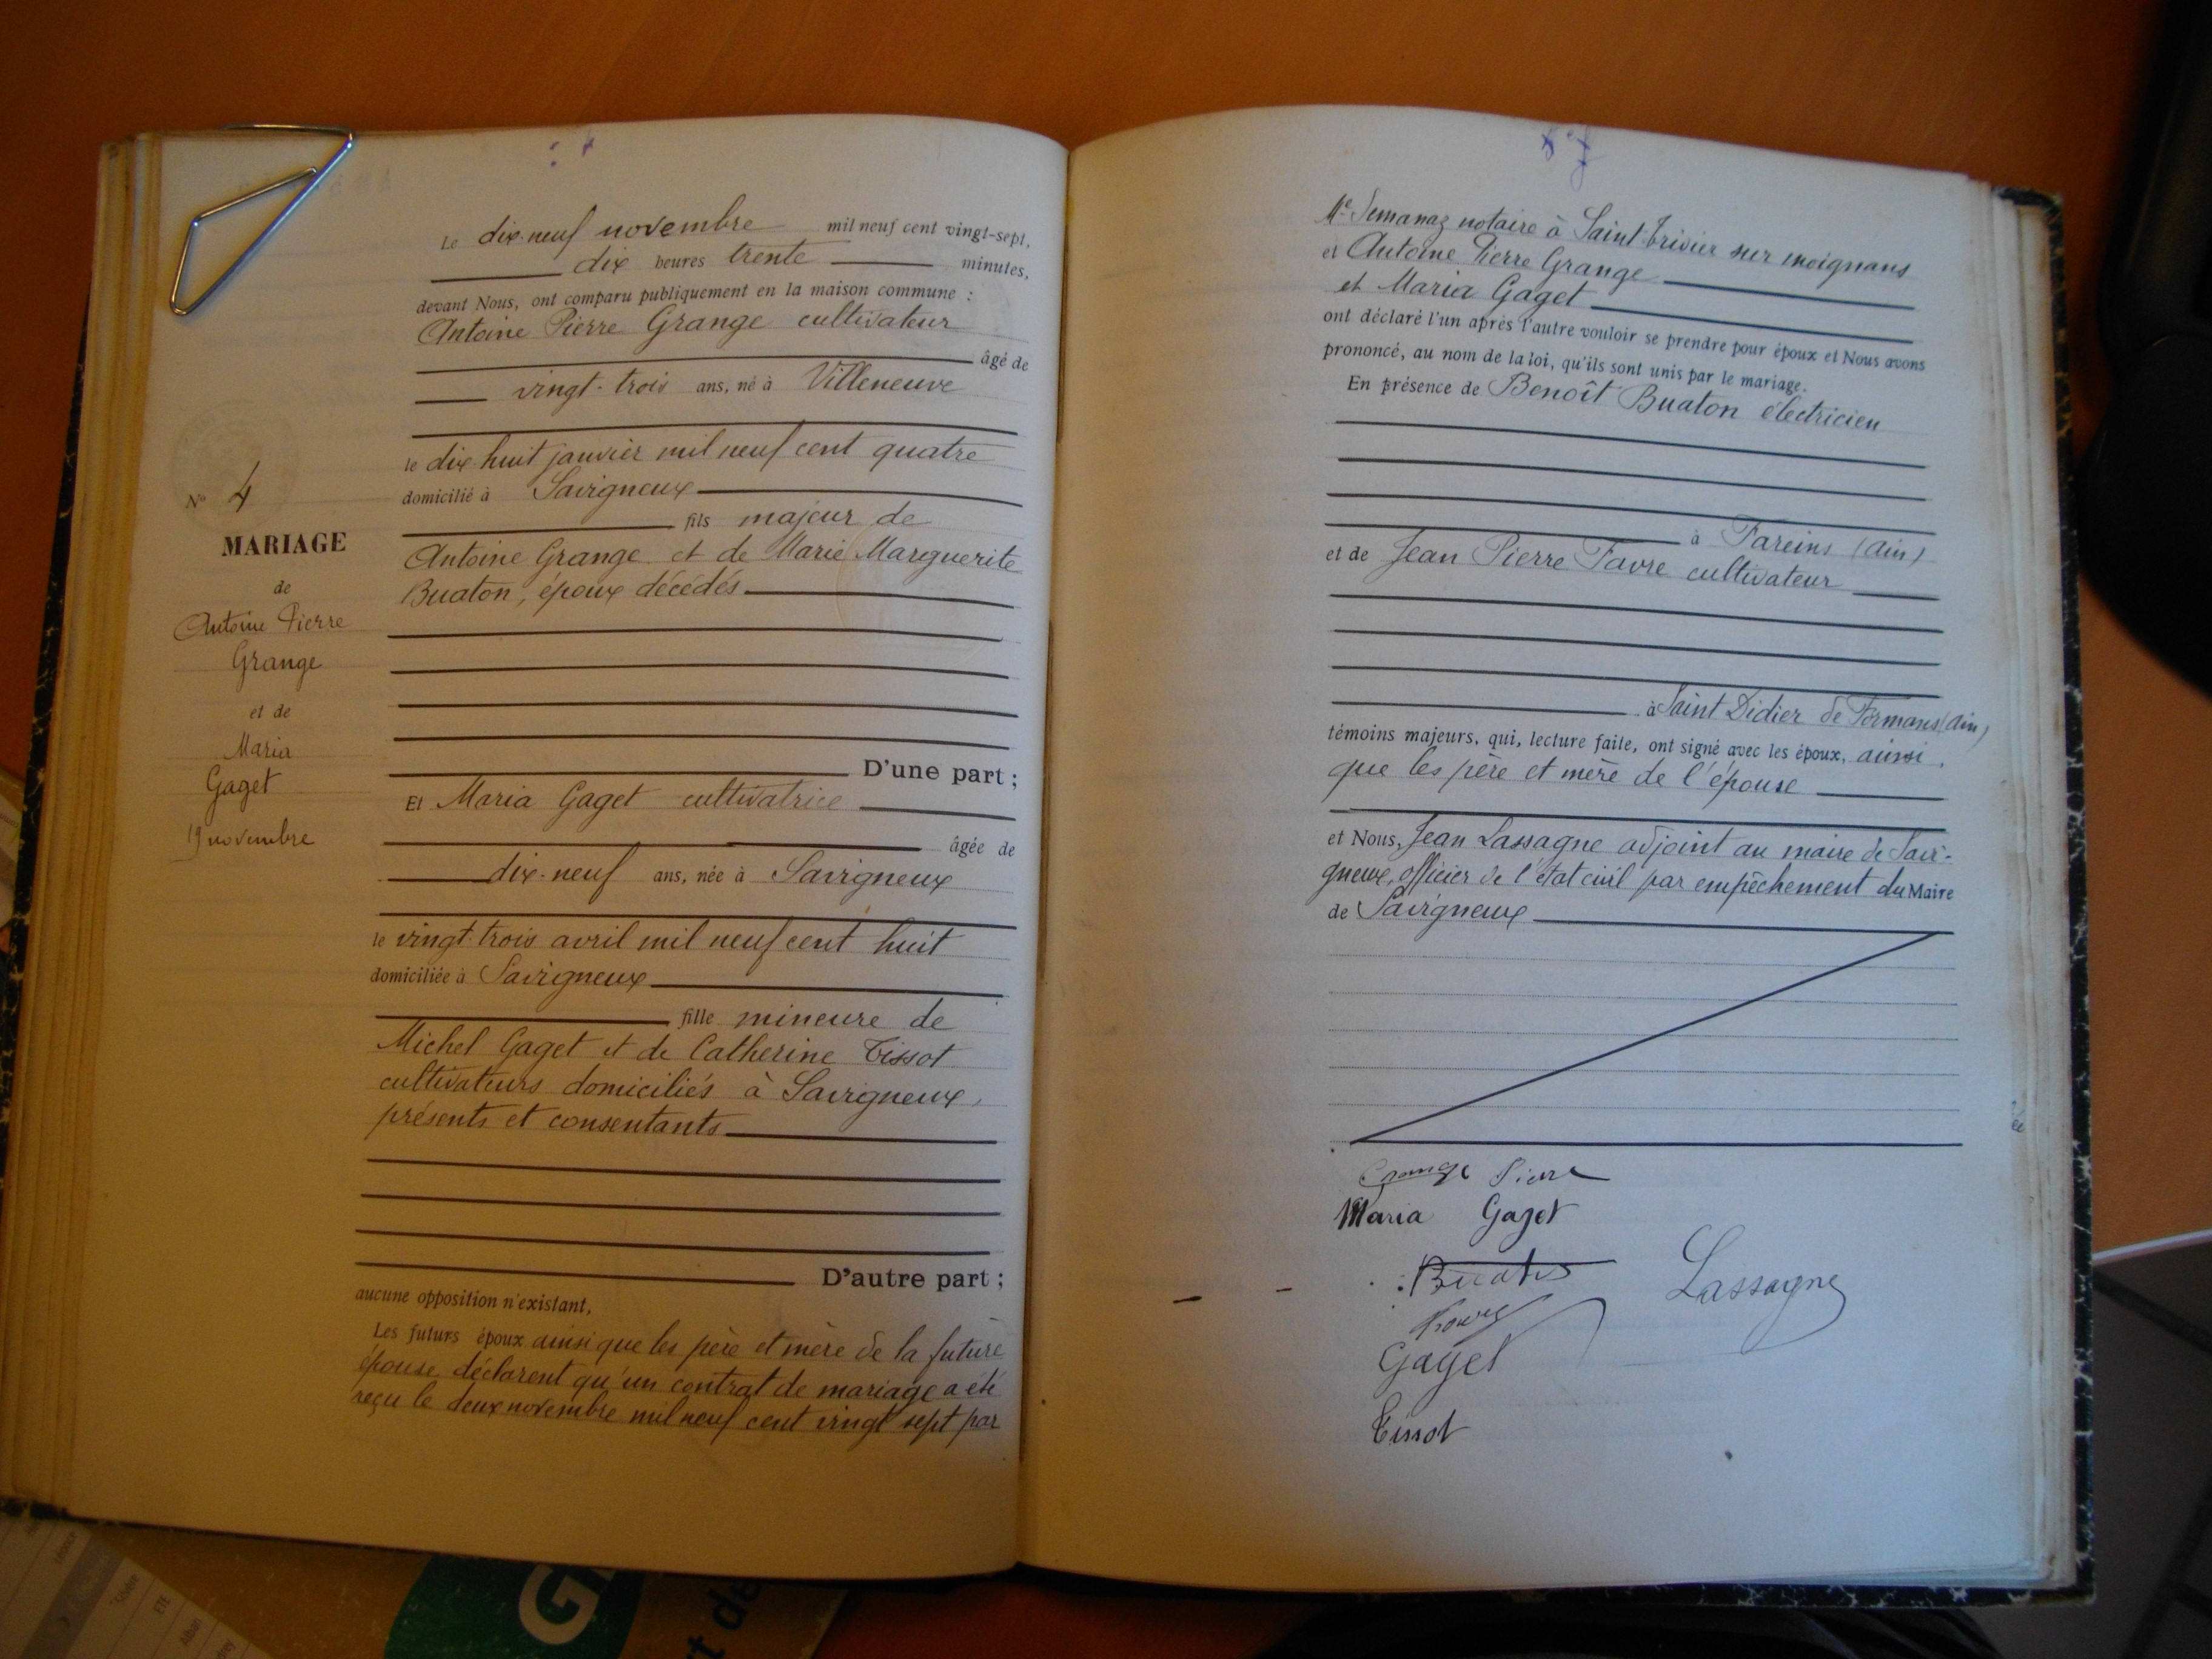 N° 4
MARIAGE
de
Antoine Pierre
Grange
et de
Maria
Gaget
19 novembre
Le dix-neuf novembre mil neuf cent vingt-sept,
dix heures trente minutes,
devant Nous, ont comparu publiquement en la maison commune :
Antoine Pierre Grange cultivateur
âgé de
vingt-trois ans, né à Villeneuve
le dix huit janvier mil neuf cent quatre
domicilié à Savigneux
fils majeur de
Antoine Grange et de Marie Marguerite
Buaton, époux décédés
D'une part ;
Et Maria Gaget cultivatrice
âgée de
dix-neuf ans, née à Savigneux
le vingt-trois avril mil neuf cent huit
domiciliée à Savigneux
fille mineure de
Michel Gaget et de Catherine Tissot
cultivateurs domiciliés à Savigneux,
présents et consentants
D'autre part ;
aucune opposition n'existant,
Les futurs époux ainsi que les père et mère de la future
épouse déclarent qu'un contrat de mariage a été
reçu le deux novembre mil neuf cent vingt sept par
Me notaire à Saint Trivier sur moignans
et Antoine Pierre Grange
et Maria Gaget
ont déclaré l'un après l'autre vouloir se prendre pour époux et Nous avons
prononcé, au nom de la loi, qu'ils sont unis par le mariage.
En présence de Benoît Buaton électricien
à Fareins (Ain)
et de Jean Pierre Favre cultivateur
à Saint Didier de Formans (Ain)
témoins majeurs, qui, lecture faite, ont signé avec les époux, ainsi
que les père et mère de l'épouse
et Nous, Jean Lassagne adjoint au maire de Savi-
gneux, officier de l'état civil par empêchement du Maire
de Savigneux
Grange Pierre
Maria Gaget
Buaton
Lassagne
Favre
Gaget
Tissot